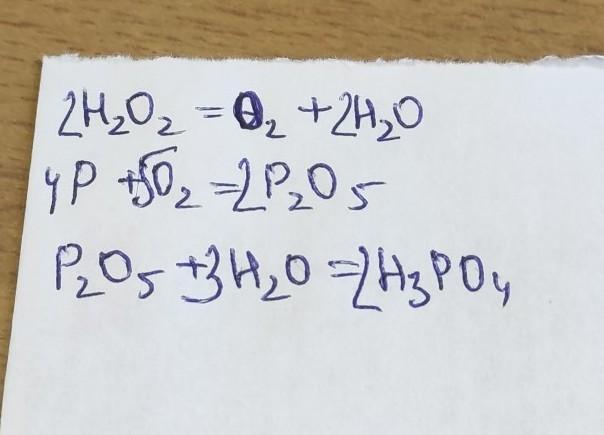 2H₂O₂ = O₂ + 2H₂O
4P + 5O₂ = 2P₂O₅
P₂O₅ + 3H₂O = 2H₃PO₄